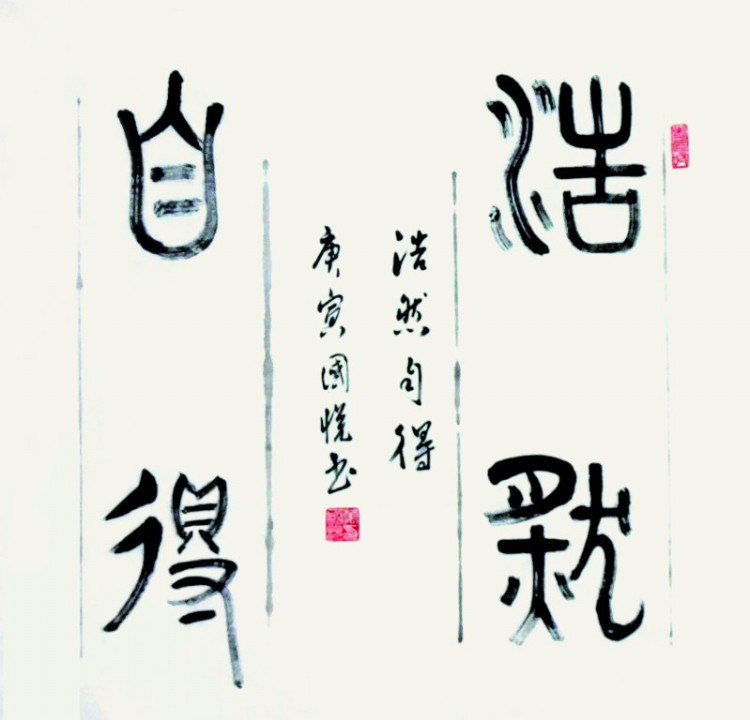 浩然
浩然自得
庚寅國悦书
自得